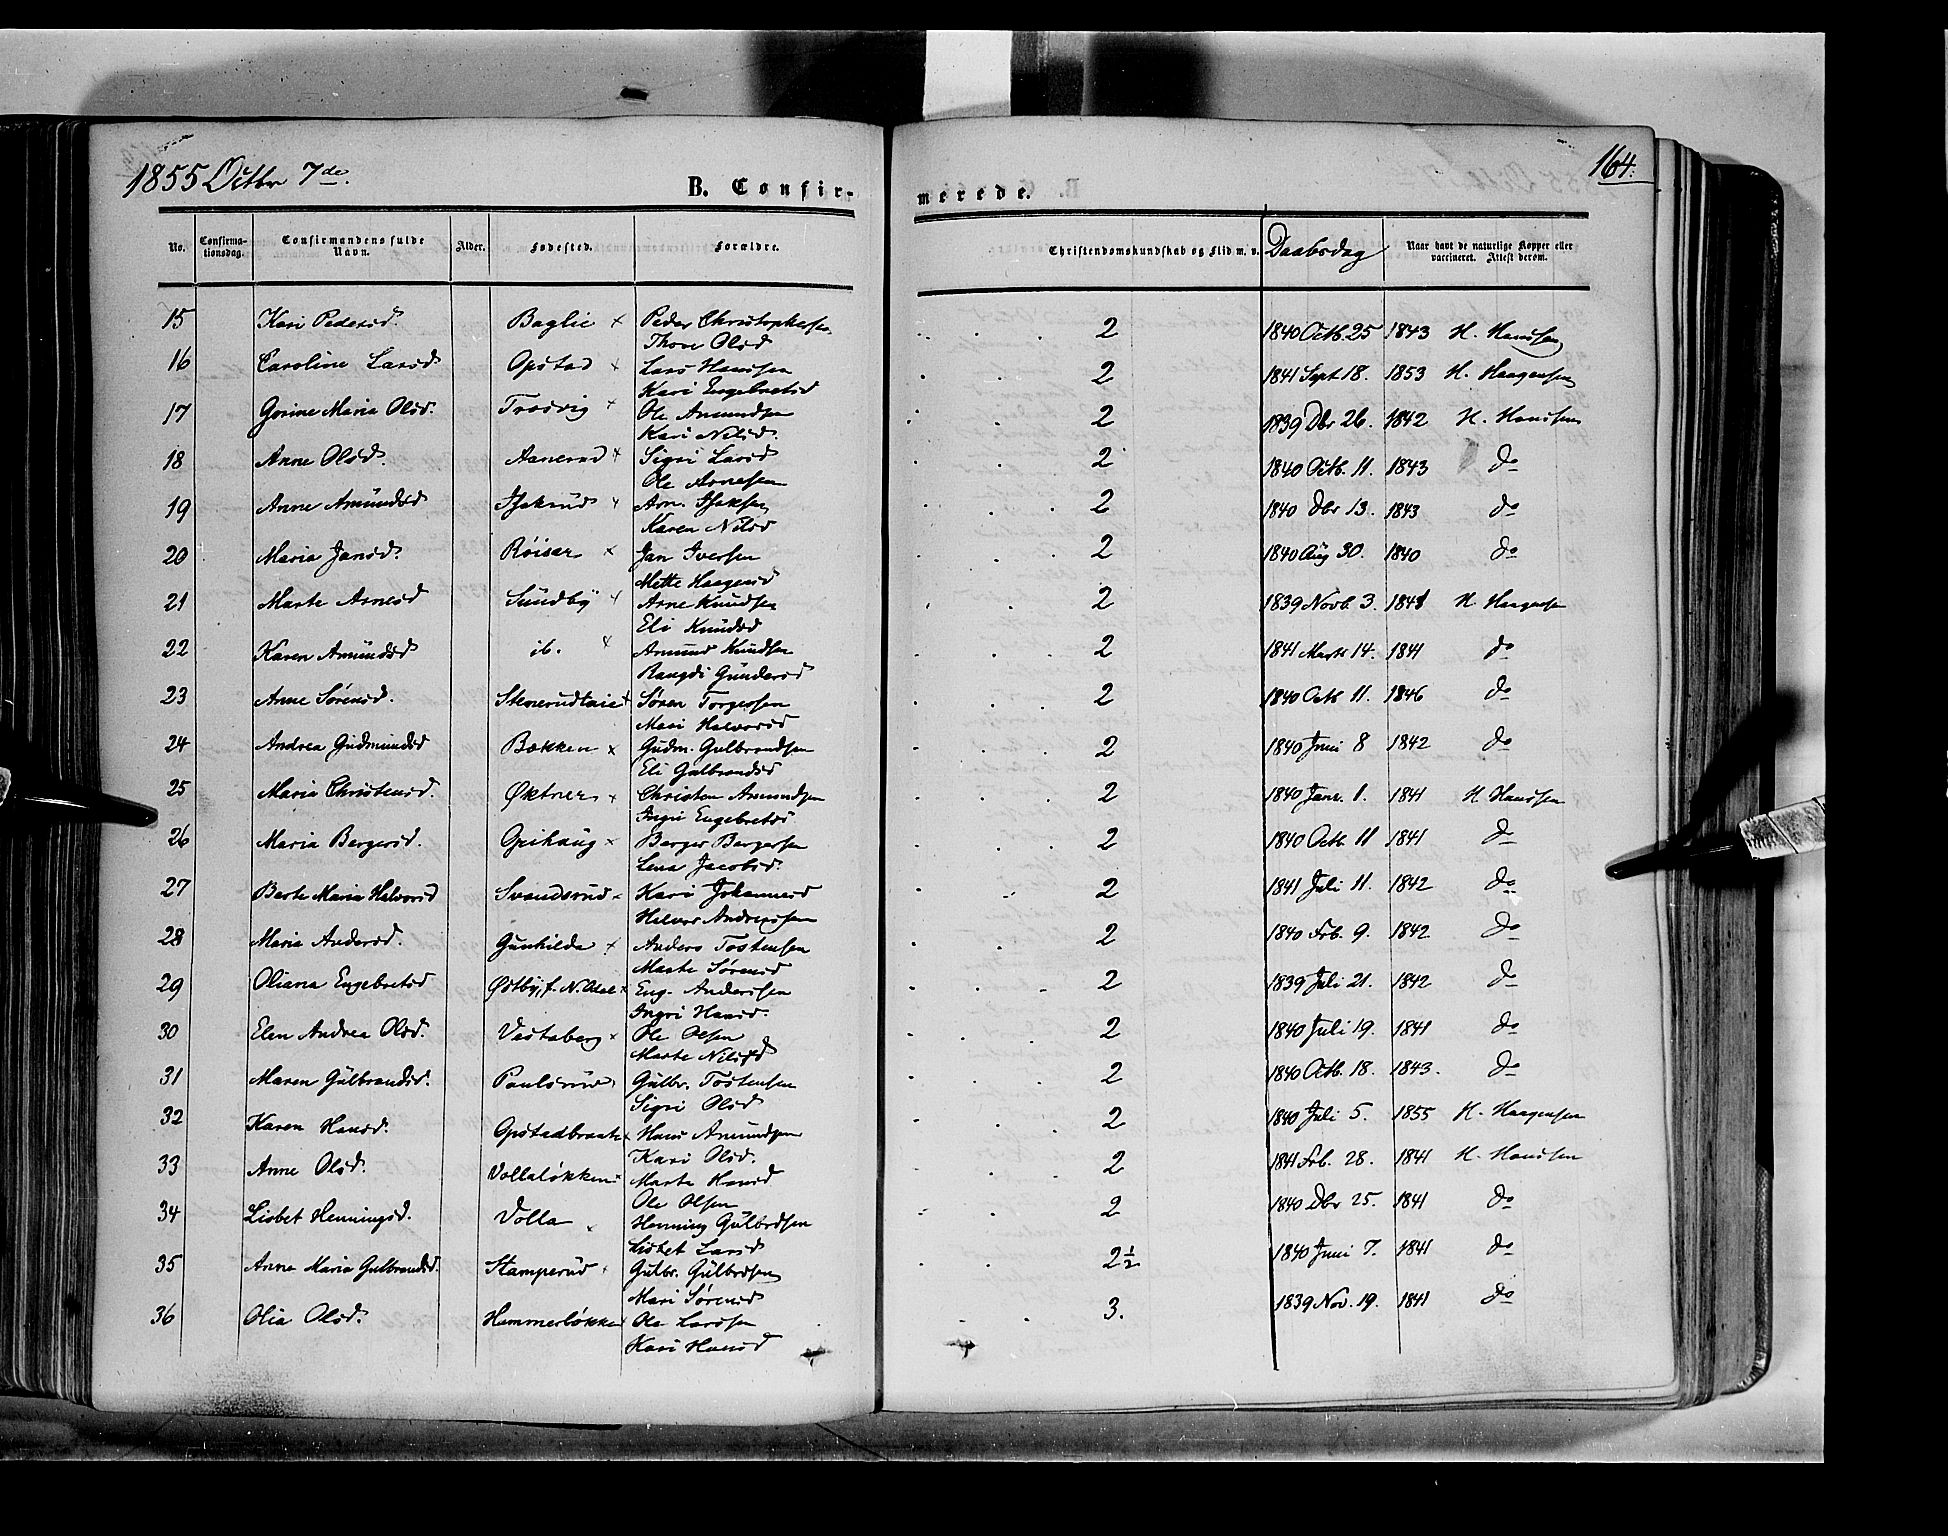 1855 Octbr 7de.
B. Confir-
merede.
164.
No. Confirma-tionsdag. Confirmandens fulde Navn. Alder. Fødested. Forældre. Christendomskundskab og Flid m. v. Daabsdag Naar havt de naturlige Kopper eller vaccineret. Attest derom.
15 Kari Pedersd. Baglie x Peder Christophersen 2 1840 Octb. 25 1843 H. Hansen
Thore Olsd
16 Caroline Larsd Opstad x Lars Hansen 2 1841 Sept. 18. 1853 H. Haagensen
Kari Engebretsd
17 Gorine Maria Olsd. Trosvig x Ole Amundsen 2 1839 Dbr 26. 1842 H. Hansen
Kari Nilsd.
18 Anne Olsd. Aanerud x Sigri Larsd 2 1840 Octb. 11. 1843 do
Ole Arnesen
19 Anne Amundsd Isakrud x Am. Isaksen 2 1840 Dbr 13. 1843 do
Karen Nilsd
20 Maria Jansd. Røiser x Jan Iversen 2 1840 Aug 30. 1840 do
Mette Haagensd
21 Marte Arnesd Sundby x Arne Knudsen 2 1839 Novb. 3. 1841 H Haagensen
Eli Knudsd
22 Karen Amundsd ib. x Amund Knudsen 2 1841 Marts 14. 1841 do
Rangdi Gundersd
23 Anne Sørensd. Stenerudteie x Søren Torgersen 2 1840 Octb 11. 1846 do
Mari Halvorsd
24 Andrea Gudmundsd Bækken x Gudm. Gulbrandsen 2 1840 Juni 8 1842 do
Eli Gulbrandsd
25 Maria Christensd. Øktner x Christen Amundsen 2 1840 Janr. 1. 1841 H Hansen
Ingri Engebretsd
26 Maria Bergersd. Grihaug x Berger Bergersen 2 1840 Octb. 11 1841 do
Lena Jacobsd.
27 Berte Maria Halvorsd Svendsrud x Kari Johannesd 2 1841 Juli 11. 1842 do
Halvor Andreassen
28 Maria Andersd. Gunhilds x Anders Tostensen 2 1840 Feb. 9. 1842 do
Marte Sørensd
29 Oliana Engebretsd Østby, f. N. Odal x Eng. Anderssen 2 1839 Juli 21. 1842 do
Ingri Hansd.
30 Elen Andrea Olsd. Vestaberg x Ole Olsen 2 1840 Juli 19. 1841 do
Marte Nilsd
31 Maren Gulbrandsd. Paulsrud Gulbr. Tostensen 2 1840 Octb. 18. 1843. do
Sigri Olsd
32 Karen Hansd. Opstadbraate x Hans Amundsen 2 1840 Juli 5. 1855 H. Haagensen
Kari Olsd.
33 Anne Olsd. Vollaløkken x Marte Hansd 2 1841 Feb. 28. 1841 H. Hansen
Ole Olsen
34 Lisbet Henningsd. Volla x Henning Gulbrdsen 2 1840 Dbr 25. 1841 do
Lisbet Larsd
35 Anne Maria Gulbrandsd. Stamperud x Gulbr. Gulbrdsen 2½ 1840 Juni 7. 1841 do
Mari Sørensd
36 Olia Olsd. Hammerløkken Ole Larssen 3. 1839 Nov. 19. 1841 do
Kari Hansd